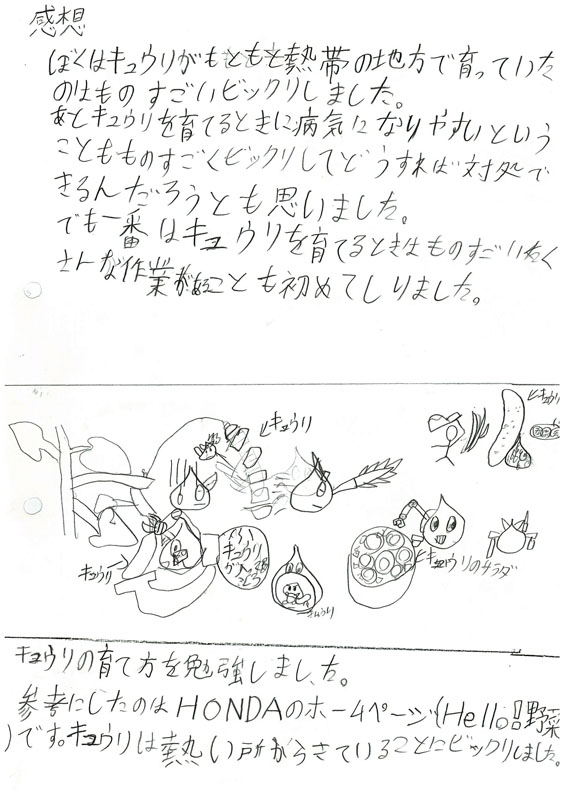 感想
ぼくはキュウリがもともと熱帯の地方で育っていた
のはものすごいビックリしました。
あとキュウリを育てるときに病気になりやすいという
こともものすごくビックリしてどうすれば対処で
きるんだろうとも思いました。
でも一番はキュウリを育てるときはものすごいたく
さんな作業があることも初めてしりました。
キュウリ
キュウリ
キュウリ
キュウリ
キュウリのサラダ
キュウリの育て方を勉強しました。
参考にしたのはHONDAのホームページ(Hello!野菜
)です。キュウリは熱い所がらきていることにビックリしました。